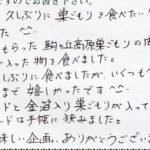 久しぶりに巣ごもりを食べたい
た ^^
もらった駒ヶ近高原巣ごもりの
入った物を食べました。
しぶりに食べましたが、いくつも
まで嬉しかったです ^^
ドと金箔入り巣ごもりが入って
ードは手帳に狭みました。
味しい企画、ありがとうござい